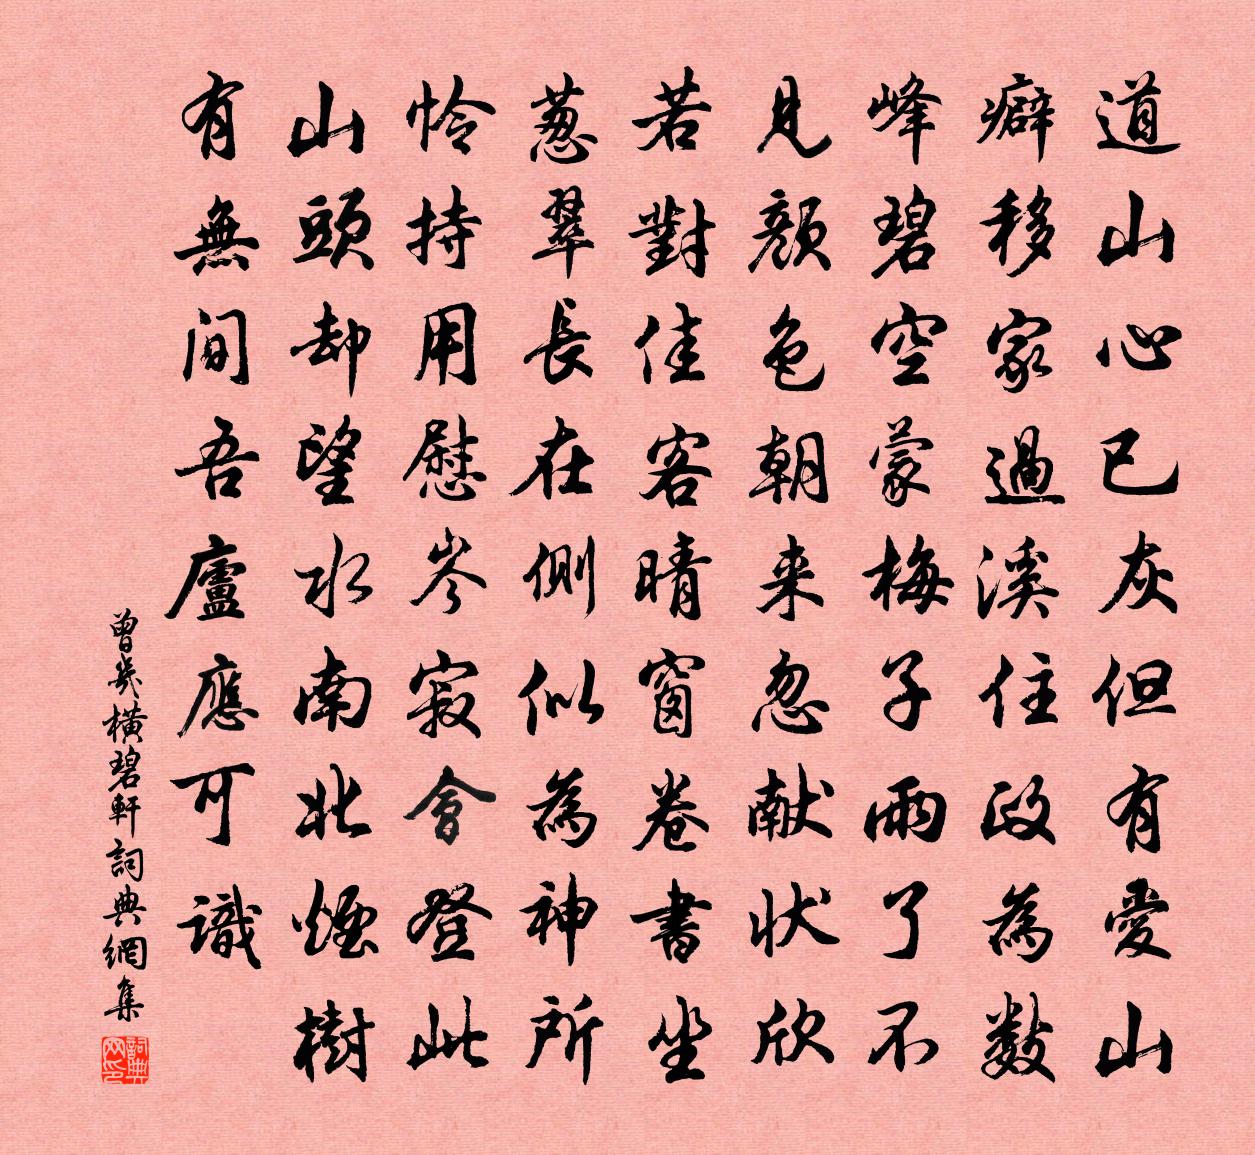 道山心已灰但有愛山
癖移家過溪住政為數
峰碧空蒙梅子雨了不
見顏色朝来忽献状欣
若對佳客晴窗卷書坐
葱翠長在側似為神所
怜持用慰岑寂會登此
山頭却望水南北煙樹
有無間吾廬應可識
曾幾橫碧軒詞典網集
詞典网印